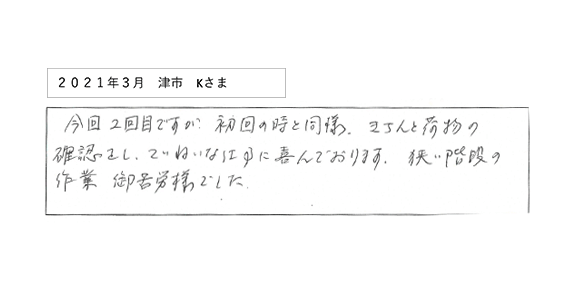 2021年3月 津市 Kさま
今回2回目ですが 初回の時と同様、きちんと荷物の
確認をし、ていねいな仕事に喜んでおります。狭い階段の
作業 御苦労様でした。